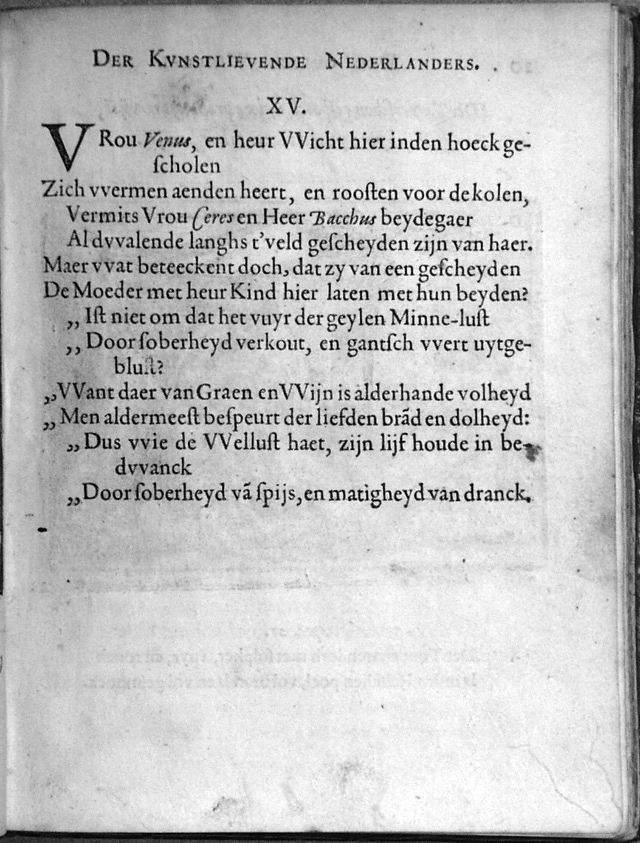 DER KVNSTLIEVENDE NEDERLANDERS.
XV.
VRou Venus, en heur VVicht hier inden hoeck ge-
ſcholen
Zich vvermen aenden heert, en rooſten voor de kolen,
Vermits Vrou Ceres en Heer Bacchus beydegaer
Al dvvalende langhs t'veld geſcheyden zijn van haer.
Maer vvat beteeckent doch, dat zy van een geſcheyden
De Moeder met heur Kind hier laten met hun beyden?
,, Iſt niet om dat het vuyr der geylen Minne-luſt
,, Door ſoberheyd verkout, en gantſch vvert uytge-
bluſt?
,,VVant daer van Graen en VVijn is alderhande volheyd
,, Men aldermeeſt beſpeurt der liefden brãd en dolheyd:
,, Dus vvie de VVelluſt haet, zijn lijf houde in be-
dvvanck
,,Door ſoberheyd vã ſpijs, en matigheyd van dranck.